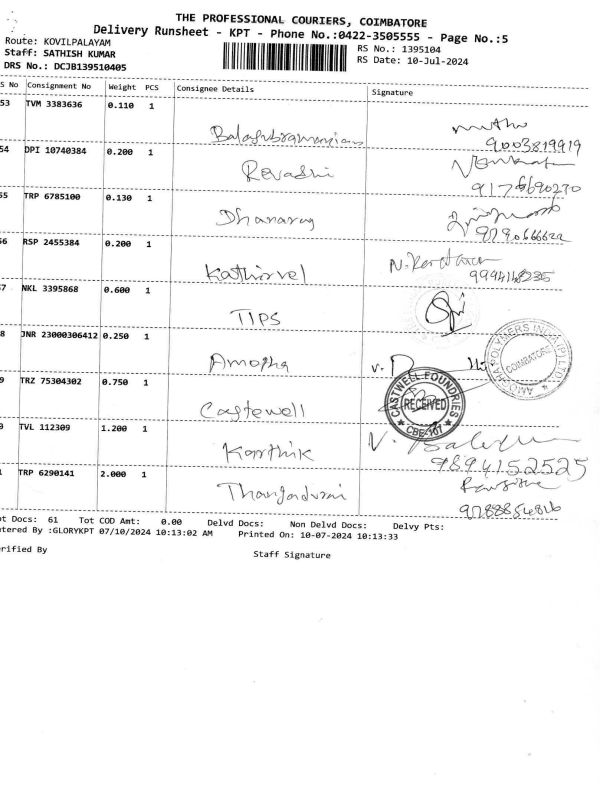 THE PROFESSIONAL COURIERS, COIMBATORE
Delivery Runsheet - KPT - Phone No.:0422-3505555 - Page No.:5
Route: KOVILPALAYAM
RS No.: 1395104
Staff: SATHISH KUMAR
RS Date: 10-Jul-2024
DRS No.: DCJB139510405
S No Consignment No Weight PCS Consignee Details Signature
53 TVM 3383636 0.110 1
Balasubramaniam
9003819919
54 DPI 10740384 0.200 1
Revathi
55 TRP 6785100 0.130 1
Dhanaraj
56 RSP 2455384 0.200 1
Kathirvel
9994148235
7 NKL 3395868 0.600 1
TIPS
8 JNR 23000306412 0.250 1
Amogha
AMOGHA POLYMERS INDIA (P) LTD.
COIMBATORE
9 TRZ 75304302 0.750 1
Castewell
CASTWELL FOUNDRIES
RECEIVED
CBE-107
TVL 112309 1.200 1
Karthik
9894152525
1 TRP 6290141 2.000 1
Thangadurai
9788854816
ot Docs: 61 Tot COD Amt: 0.00 Delvd Docs: Non Delvd Docs: Delvy Pts:
ntered By :GLORYKPT 07/10/2024 10:13:02 AM Printed On: 10-07-2024 10:13:33
erified By
Staff Signature